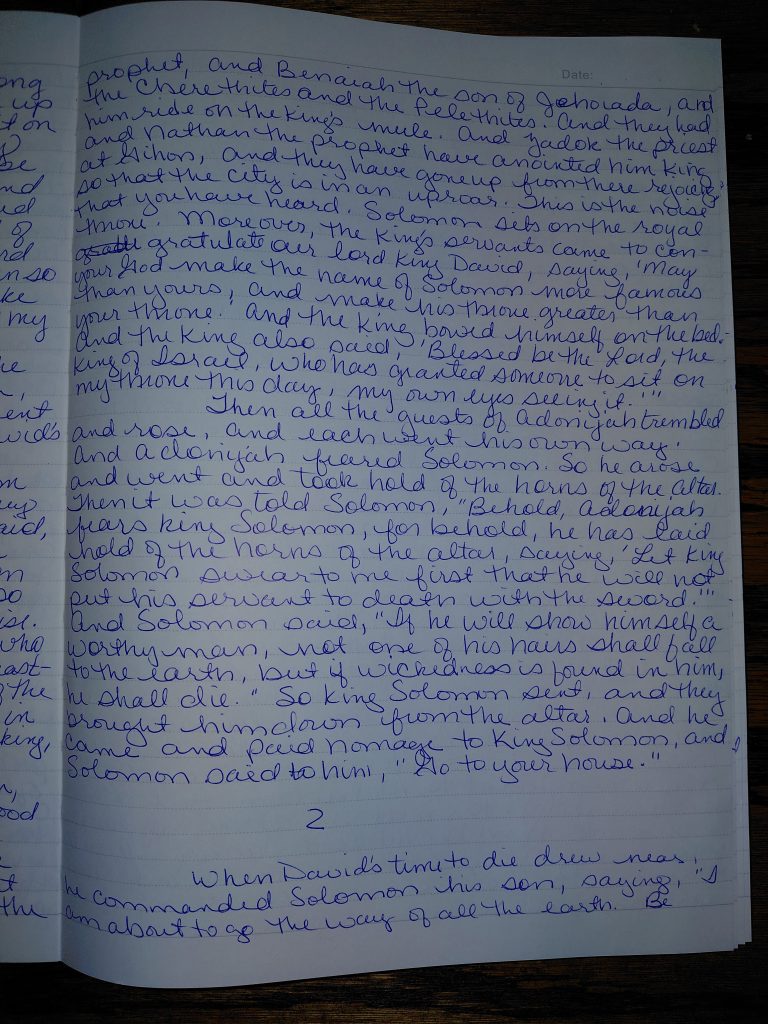 ong
up
it on
se
nd
of
rd
n so
ke
my
he
ent
vid's
m
aid,
m
so
who
east-
the
in
king,
ood
t
the
Date:
prophet, and Benaiah the son of Jehoiada, and
the Cherethites and the Pelethites. And they had
him ride on the king's mule. And Zadok the priest
and Nathan the prophet have anointed him king
at Gihon, and they have gone up from there rejoicing
so that the city is in an uproar. This is the noise
that you have heard. Solomon sits on the royal
throne. Moreover, the king's servants came to con-
gratulate our lord King David, saying, 'May
your God make the name of Solomon more famous
than yours, and make his throne greater than
your throne. And the king bowed himself on the bed.
And the king also said, 'Blessed be the Lord, the
king of Israel, who has granted someone to sit on
my throne this day, my own eyes seeing it.'"
Then all the guests of Adonijah trembled
and rose, and each went his own way.
And Adonijah feared Solomon. So he arose
and went and took hold of the horns of the altar.
Then it was told Solomon, "Behold, Adonijah
fears King Solomon, for behold, he has laid
hold of the horns of the altar, saying, 'Let King
Solomon swear to me first that he will not
put his servant to death with the sword.'"
And Solomon said, "If he will show himself a
worthy man, not one of his hairs shall fall
to the earth, but if wickedness is found in him,
he shall die." So King Solomon sent, and they
brought him down from the altar. And he
came and paid homage to King Solomon, and
Solomon said to him, "Go to your house."
2
When David's time to die drew near,
he commanded Solomon his son, saying, "I
am about to go the way of all the earth. Be